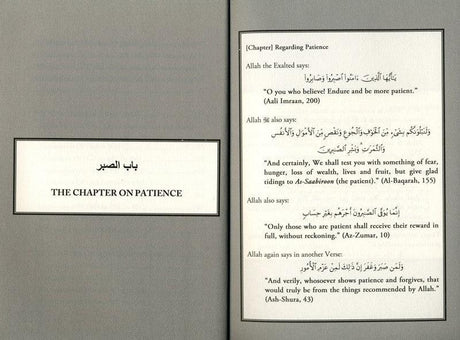 باب الصبر
THE CHAPTER ON PATIENCE
[Chapter] Regarding Patience
Allah the Exalted says:
يَٰٓأَيُّهَا ٱلَّذِينَ ءَامَنُوا۟ ٱصْبِرُوا۟ وَصَابِرُوا۟
"O you who believe! Endure and be more patient."
(Aali Imraan, 200)
Allah ﷻ also says:
وَلَنَبْلُوَنَّكُم بِشَىْءٍ مِّنَ ٱلْخَوْفِ وَٱلْجُوعِ وَنَقْصٍ مِّنَ ٱلْأَمْوَٰلِ وَٱلْأَنفُسِ
وَٱلثَّمَرَٰتِ وَبَشِّرِ ٱلصَّٰبِرِينَ
"And certainly, We shall test you with something of fear,
hunger, loss of wealth, lives and fruit, but give glad
tidings to As-Saabiroon (the patient)." (Al-Baqarah, 155)
Allah also says:
إِنَّمَا يُوَفَّى ٱلصَّٰبِرُونَ أَجْرَهُم بِغَيْرِ حِسَابٍ
"Only those who are patient shall receive their reward in
full, without reckoning." (Az-Zumar, 10)
Allah again says in another Verse:
وَلَمَن صَبَرَ وَغَفَرَ إِنَّ ذَٰلِكَ لَمِنْ عَزْمِ ٱلْأُمُورِ
"And verily, whosoever shows patience and forgives, that
would truly be from the things recommended by Allah."
(Ash-Shura, 43)